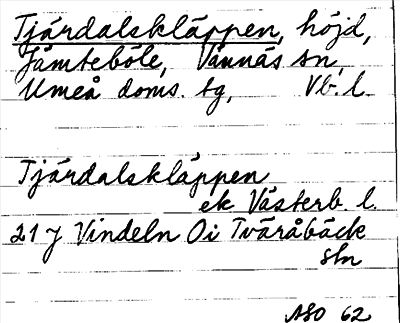 Tjärdalskläppen, höjd,
Jämteböle, Vännäs sn,
Umeå doms. tg, Vb. l.
Tjärdalskläppen
ek Västerb. l.
21 J Vindeln Oi Tväråbäck
stn
ASO 62